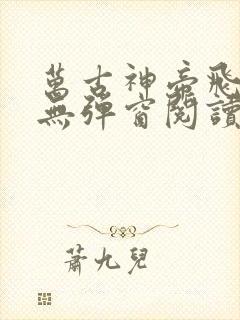 萬古神帝飛
無彈窗閱讀
蕭九兒